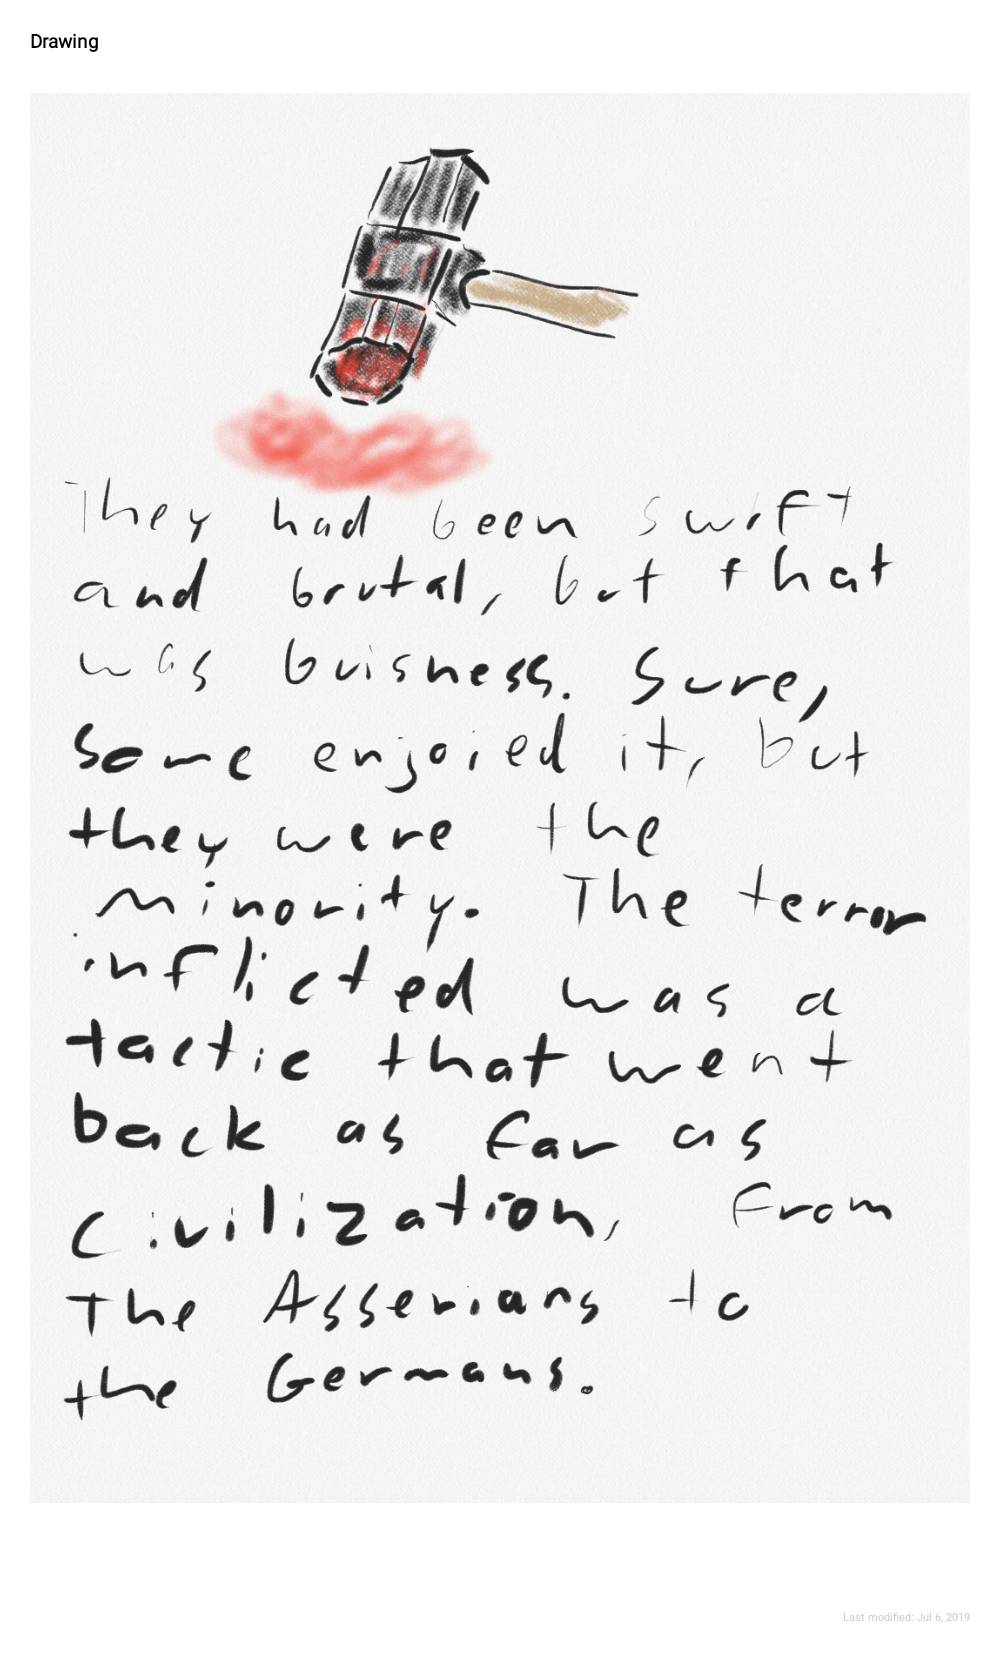 Drawing
They had been swift
and brutal, but that
was buisness. Sure,
Some enjoied it, but
they were the
minority. The terror
inflicted was a
tactic that went
back as far as
civilization, from
The Asserians to
the Germans.
Last modified: Jul 6, 2019